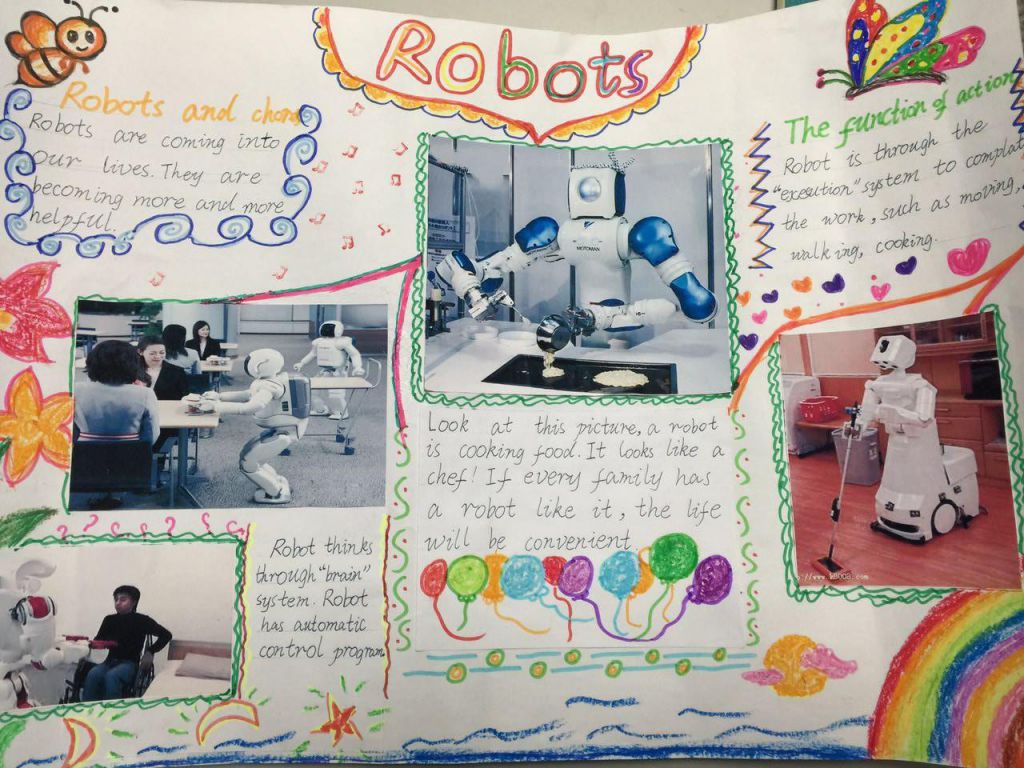 Robots
Robots and chors
Robots are coming into
our lives. They are
becoming more and more
helpful.
The function of action
Robot is through the
"execution" system to complat
the work, such as moving,
walking, cooking.
MOTOMAN
Look at this picture, a robot
is cooking food. It looks like a
chef! If every family has
a robot like it, the life
will be convenient
Robot thinks
through "brain"
system. Robot
has automatic
control program